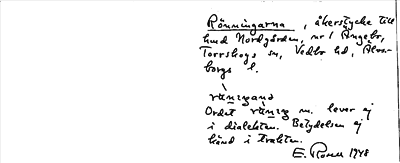 Rönningarna, åkerstycke till
hmd Nordgården, nr 1 Ängebr,
Torrskogs sn, Vedbo hd, Älvs-
borgs l.
rænigand
Ordet rænig m. lever ej
i dialekten. Betydelsen ej
känd i trakten.
E. Rosell 1948